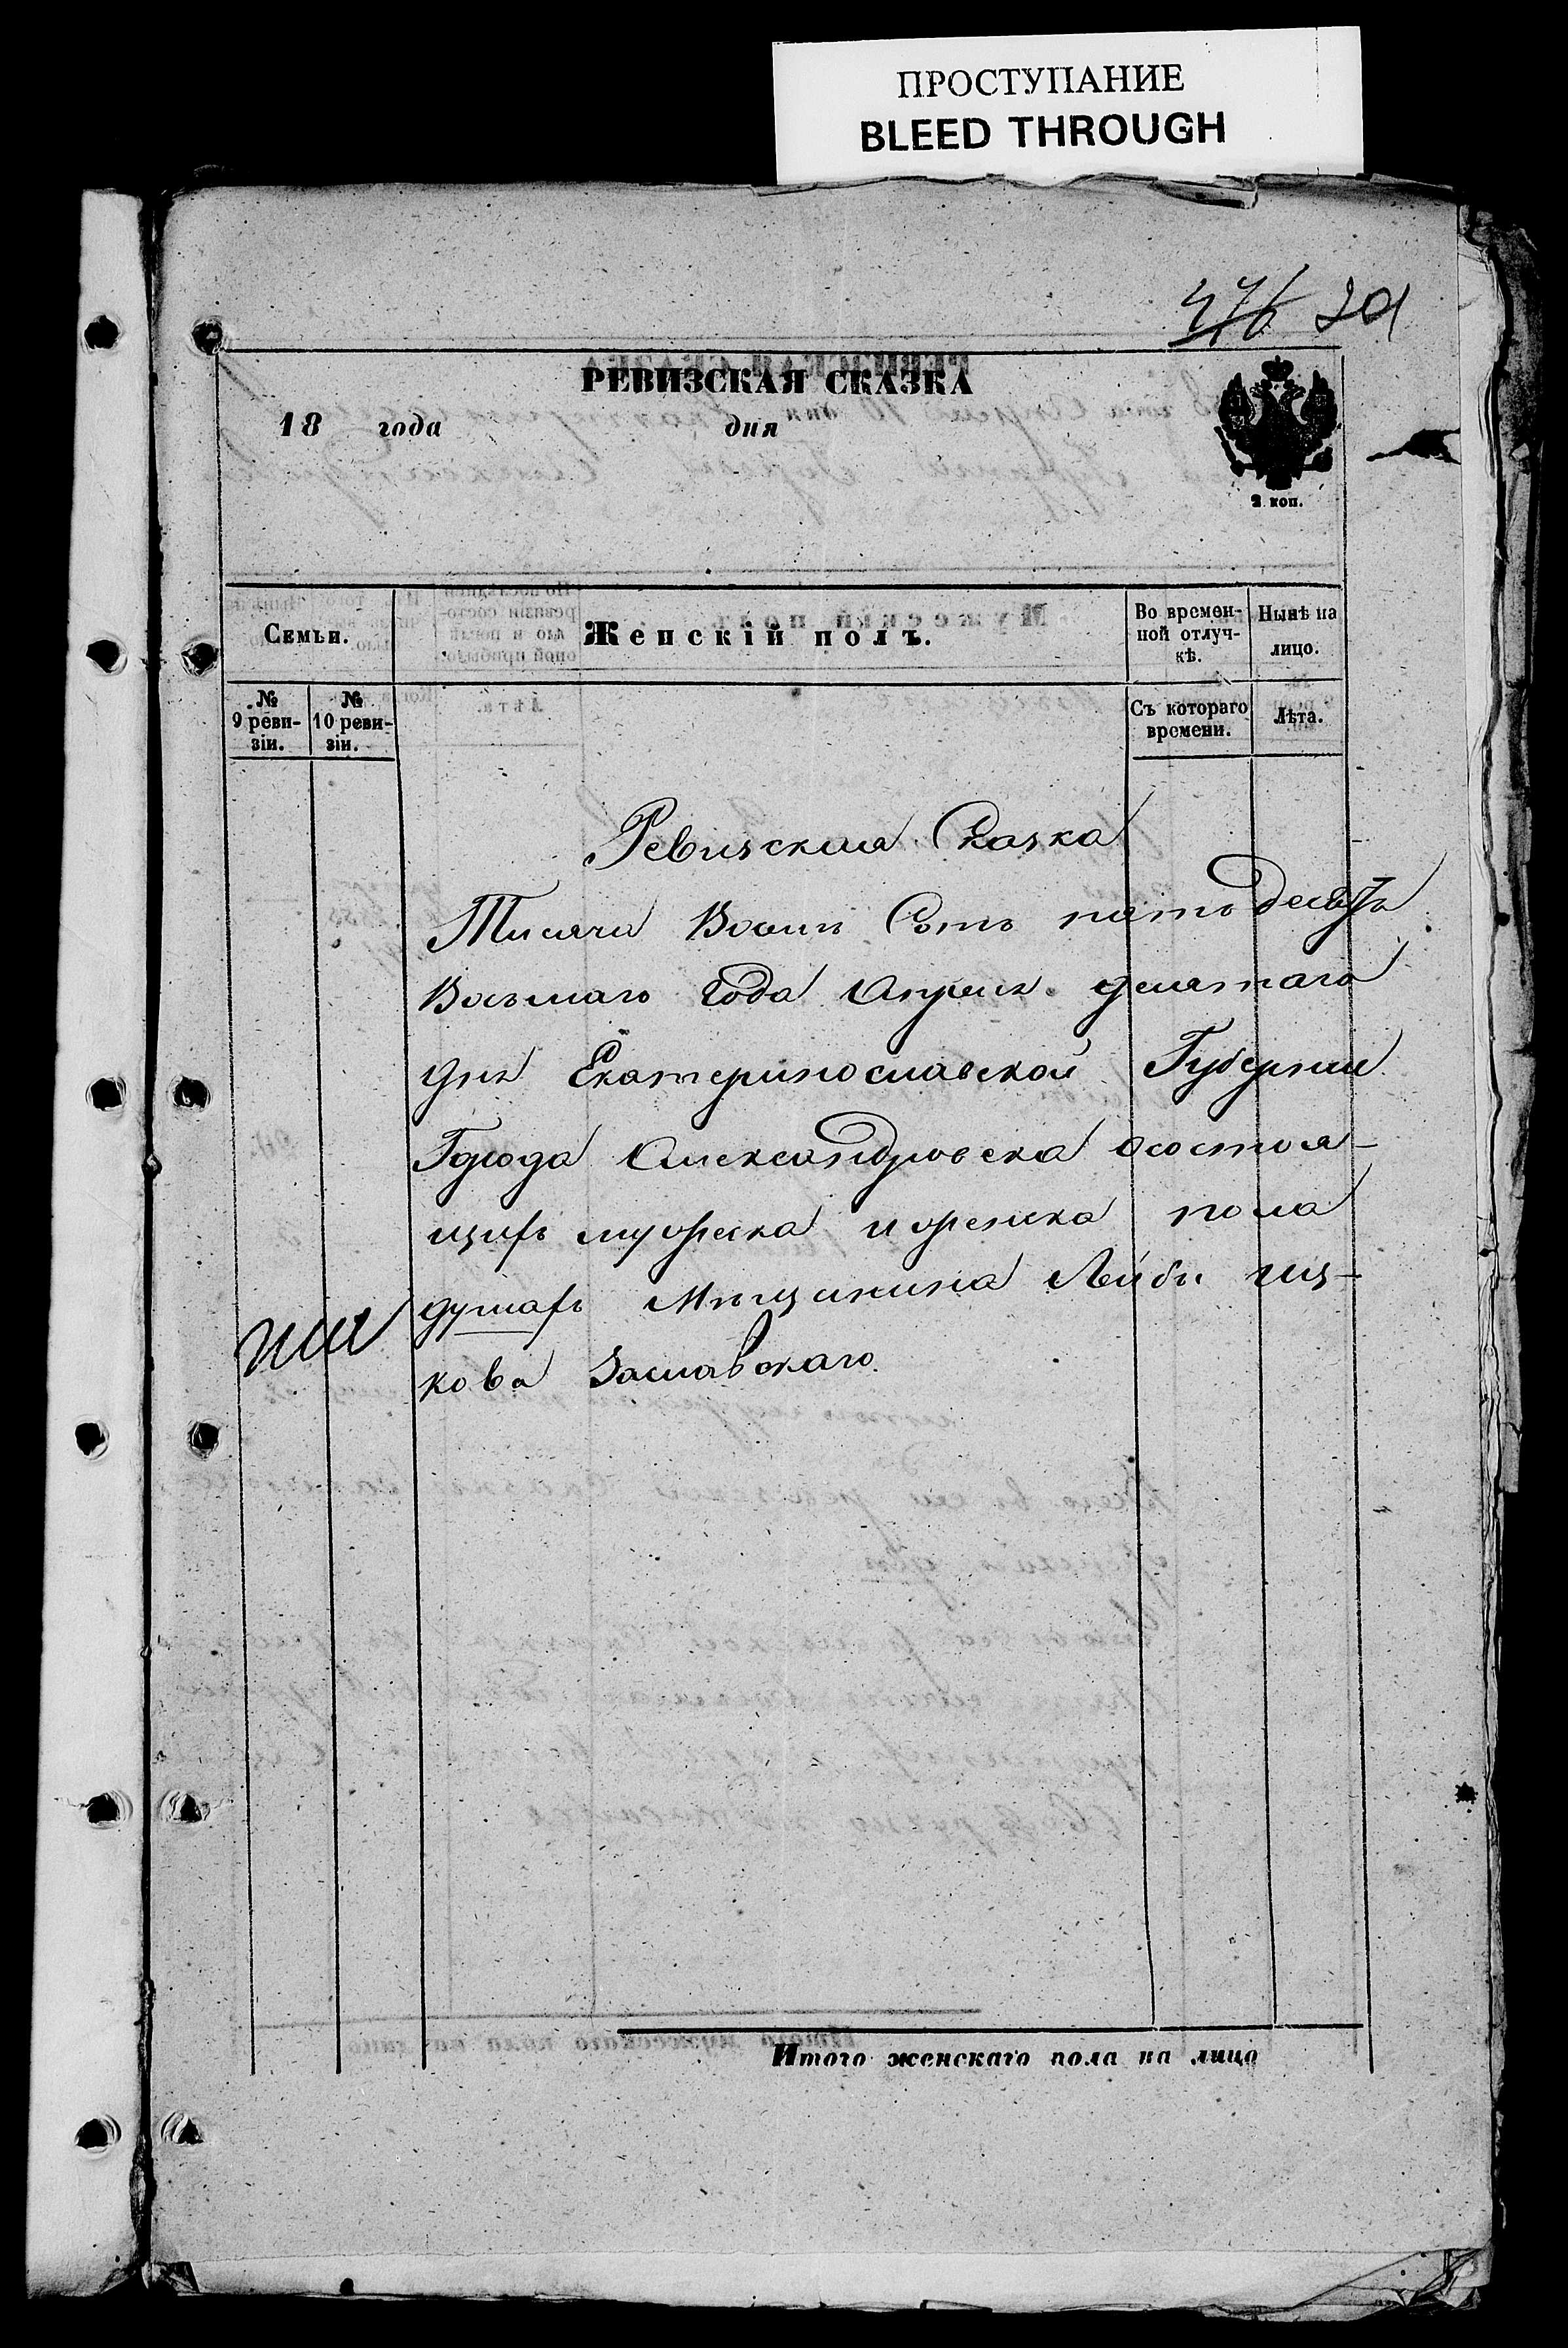 ПРОСТУПАНИЕ
BLEED THROUGH
476 201
РЕВИЗСКАЯ СКАЗКА
18 года дня
2 коп.
Семьи.
Женскій полъ.
Во времен-
ной отлуч-
кѣ.
Нынѣ на
лицо.
№
9 реви-
зіи.
№
10 реви-
зіи.
Съ котораго
времени.
Лѣта.
Ревизская Сказка
Тысяча Восимъ Сотъ пятьдесятъ
Восьмаго года Апреля десятаго
дня Екатеринославской Губерніи
Города Александровска осостоя-
щихъ мужеска и женска пола
душахъ Мѣщинина Лейби Иц-
кова Заславскаго
Итого женскаго пола на лицо